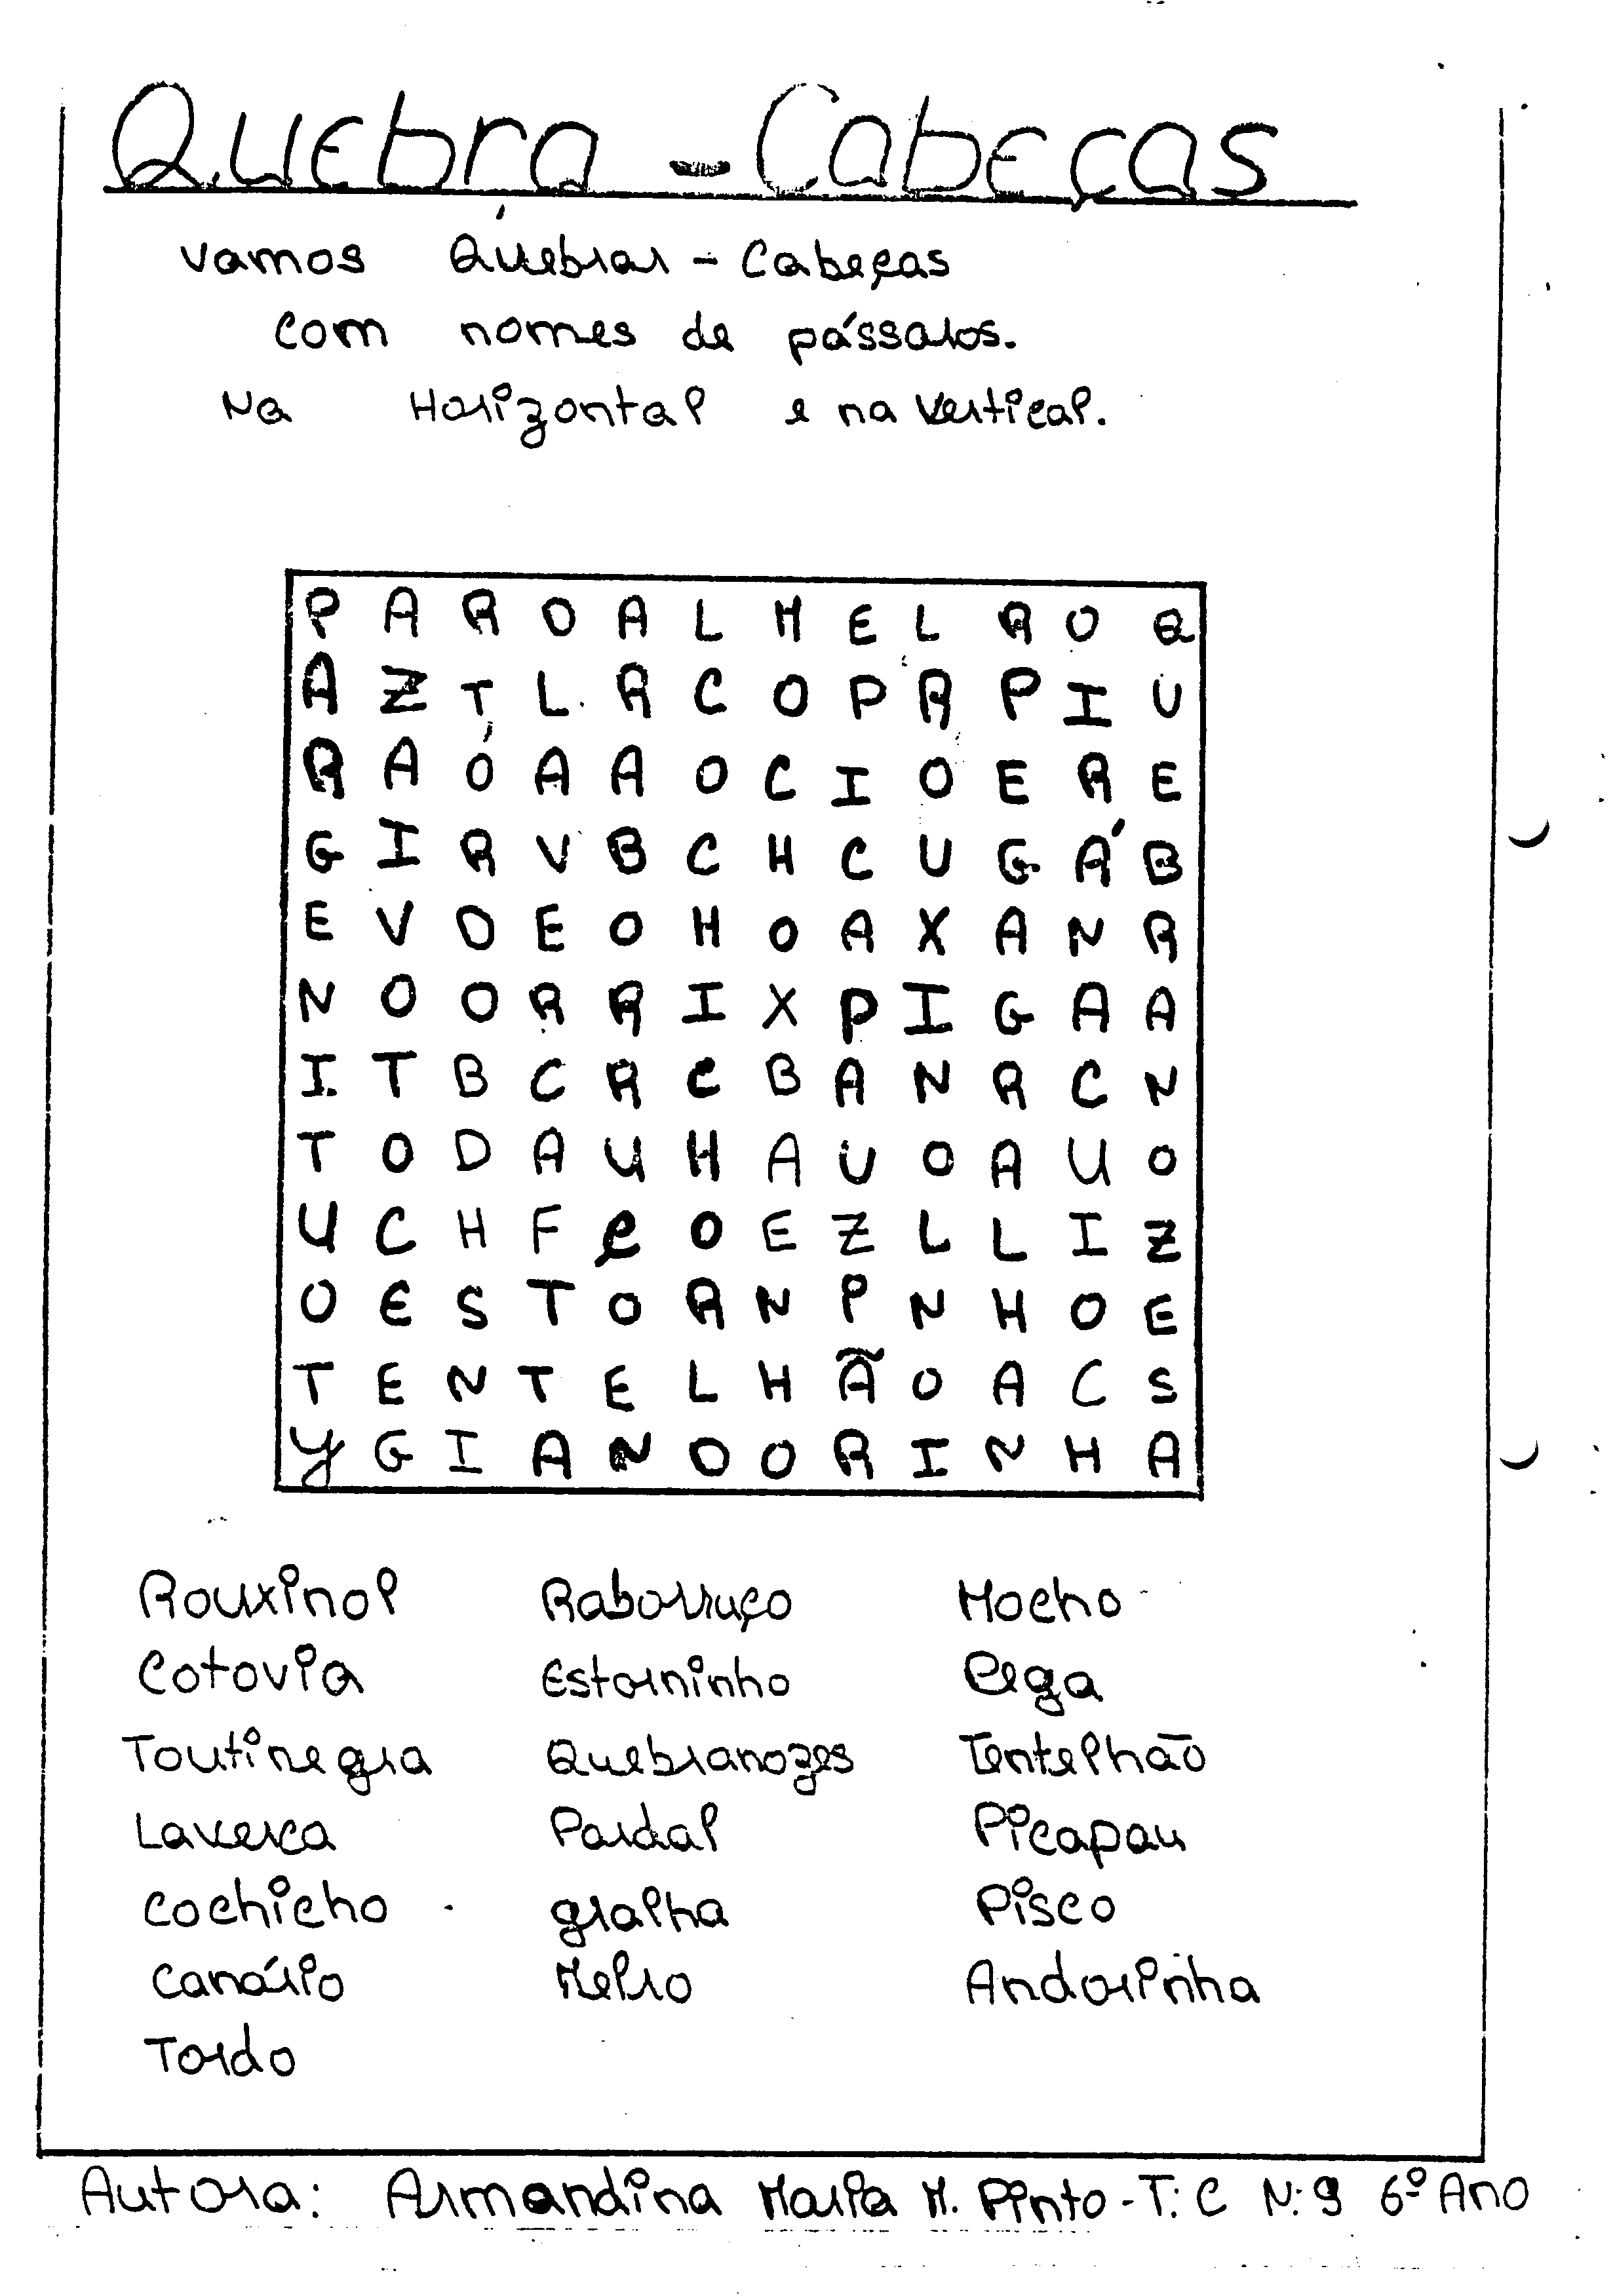 Quebra - Cabeças
Vamos Quebrar - Cabeças
com nomes de pássaros.
Na Horizontal e na Vertical.
P A R D A L M E L R O Q
A Z T L R C O P R P I U
R A Ó A A O C I O E R E
G I R V B C H C U G Á B
E V D E O H O A X A N R
N O O R R I X P I G A A
I T B C R C B A N R C N
T O D A U H A U O A U O
U C H F Ç O E Z L L I Z
O E S T O R N P N H O E
T E N T E L H Ã O A C S
Y G I A N D O R I N H A
Rouxinol Raborruço Mocho
Cotovia Estorninho Pega
Toutinegra Quebranozes Tentelhão
Laverca Pardal Picapau
Cochicho gralha Pisco
Canário Melro Andorinha
Tordo
Autora: Armandina Maria M. Pinto - T: C N: 9 6º Ano